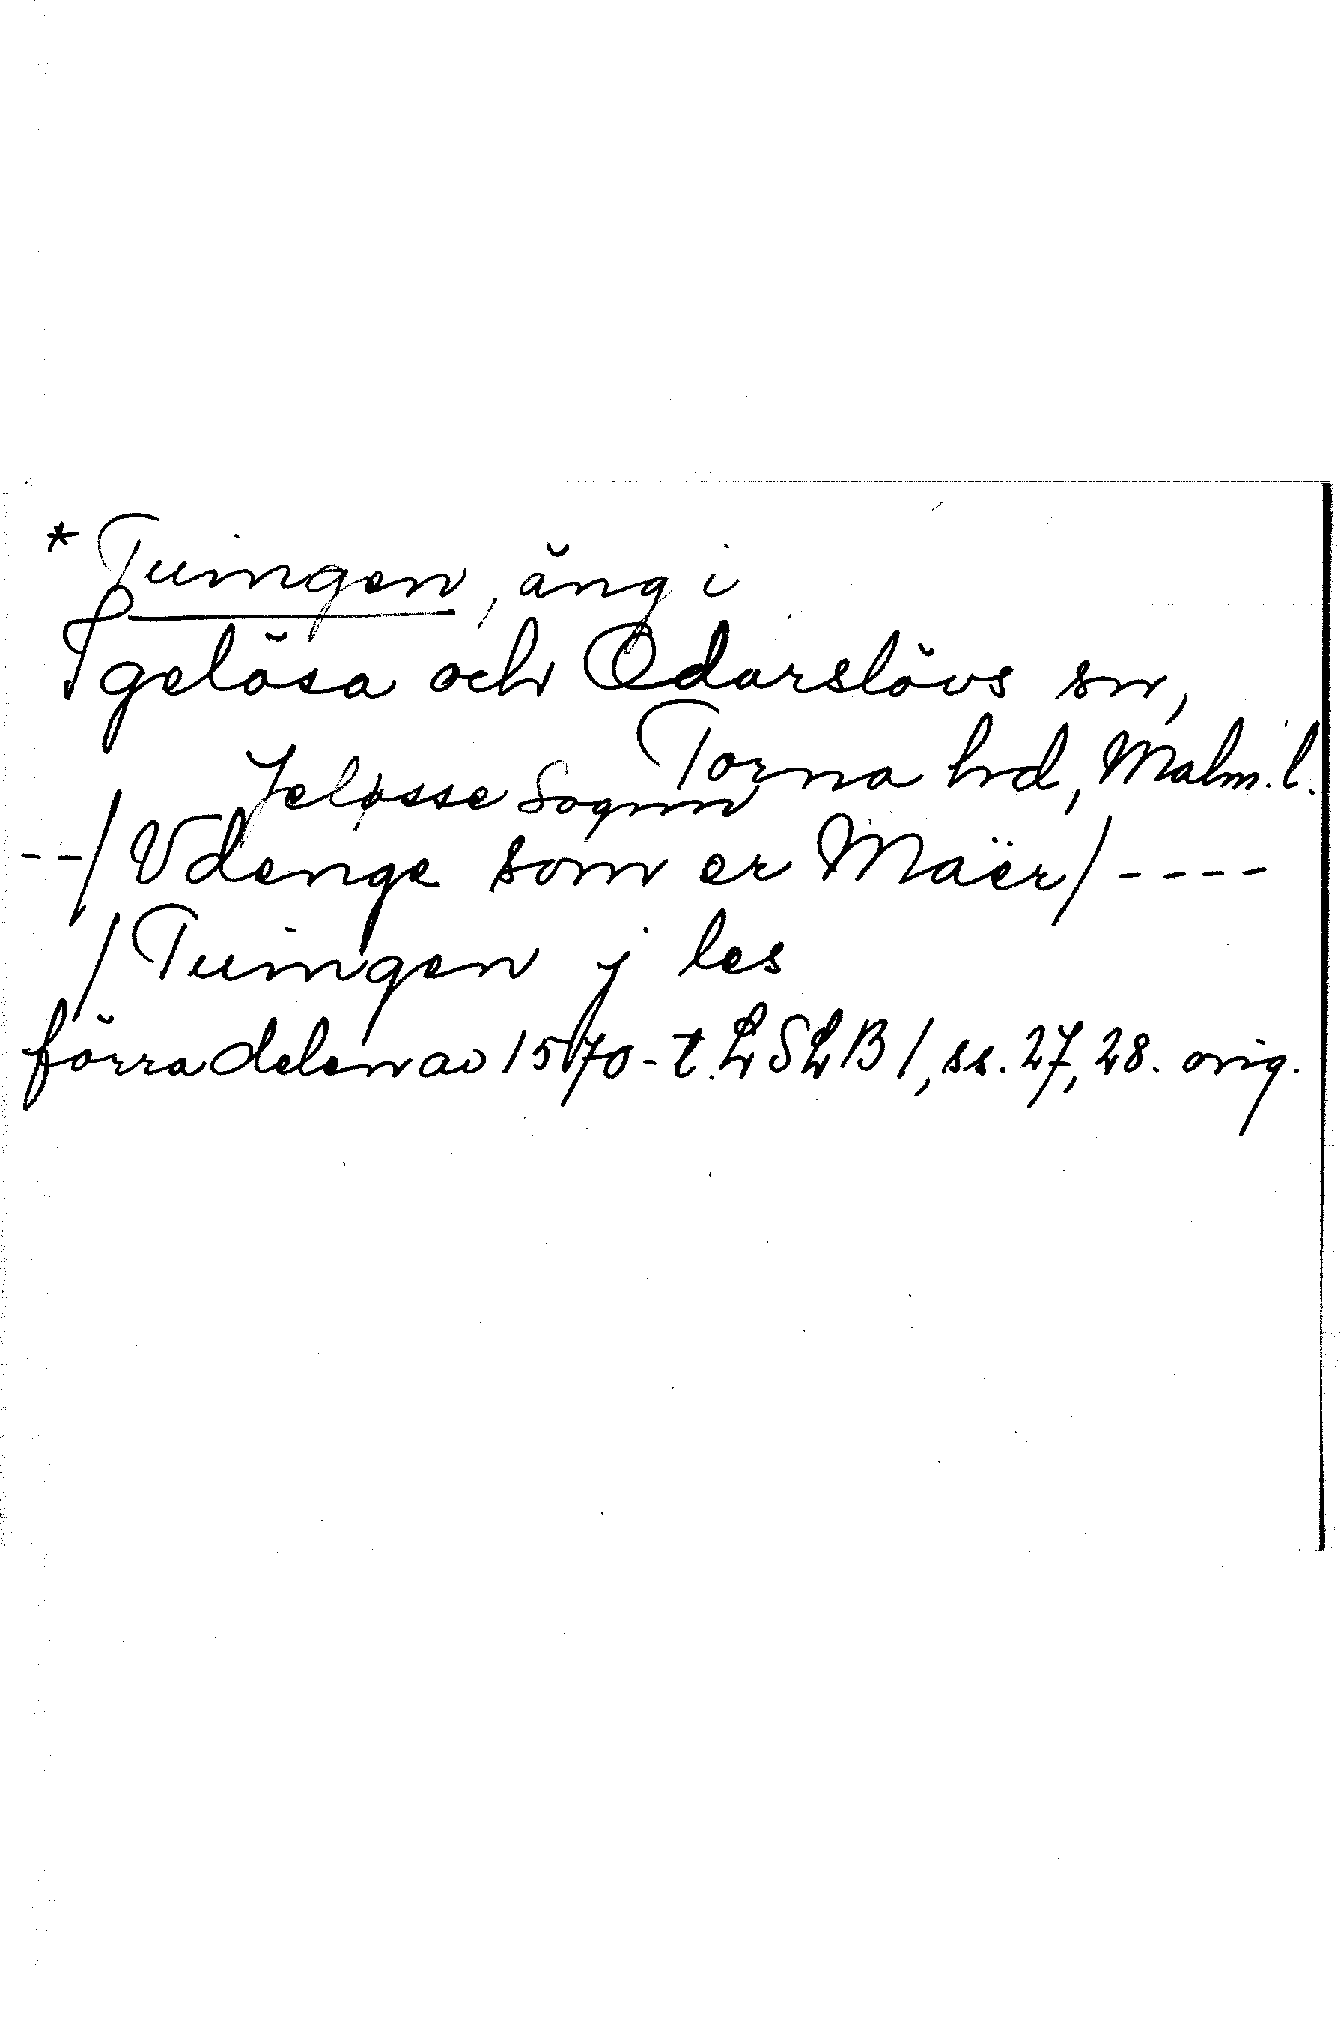 * Tuingen, äng i
Igelösa och Odarslövs sn,
Torna hrd, Malm. l.
Jeløsse Sognn
--/Vdenge som er Maër/----
/Tuingen j les
förra delen av 1570-t. LSLB 1, ss. 27, 28. orig.